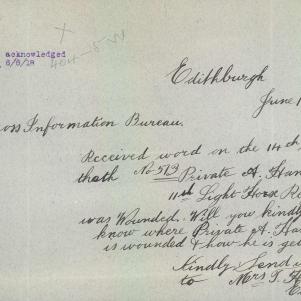 acknowledged
6/6/18
Edithburgh
June 1
oss Information Bureau.
Received word on the 14th
that No 513 Private A. Han
11th Light Horse Re
was Wounded. Will you kindly
know where Private A. Ha
is wounded & how he is get
Kindly Send
to Mrs T. H